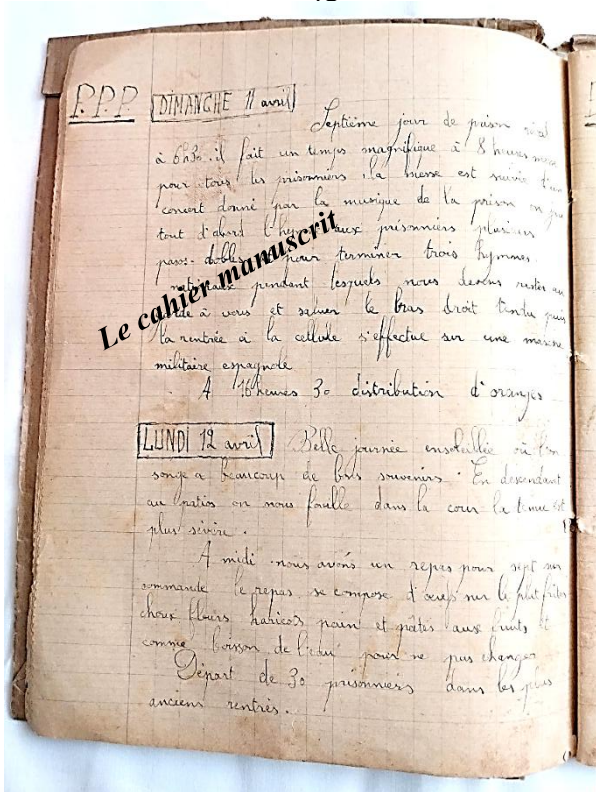 P.P.P. DIMANCHE 11 avril
Septième jour de prison
à 6h30. il fait un temps magnifique à 8 heures messe
pour tous les prisonniers. la messe est suivie d'un
concert donné par la musique de la prison on
tout d'abord aux prisonniers plusieurs
passo-dobles pour terminer trois hymnes
nationaux pendant lesquels nous devons rester au
garde à vous et saluer le bras droit tendu puis
la rentrée à la cellule s'effectue sur une marche
militaire espagnole
A 16 heures 30 distribution d'oranges
LUNDI 12 avril Belle journée ensoleillée où l'on
songe a beaucoup de bons souvenirs. En descendant
au patios on nous fouille dans la cour la tenue est
plus sévère.
A midi nous avons un repas pour sept sur
commande le repas se compose d'œufs sur le plat frites
choux fleurs haricots pain et pâtes aux fruits et
comme boisson de l'eau pour ne pas changer
Départ de 30 prisonniers dans les plus
anciens rentrés.
Le cahier manuscrit